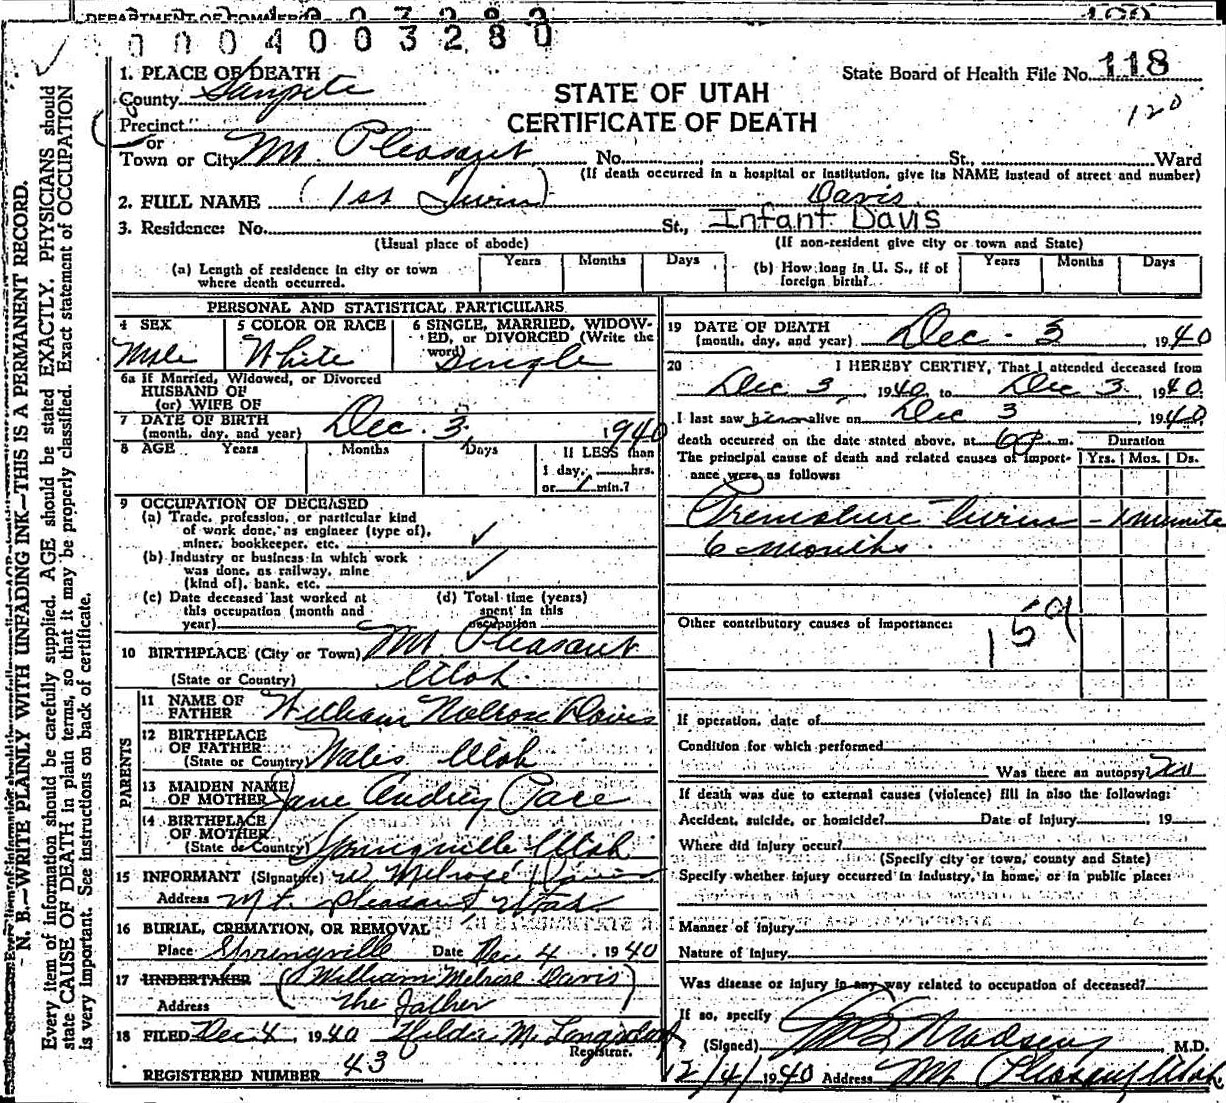 DEPARTMENT OF COMMERCE
0 0 0 4 0 0 3 2 8 0
N. B.—WRITE PLAINLY WITH UNFADING INK—THIS IS A PERMANENT RECORD.
Every item of information should be carefully supplied. AGE should be stated EXACTLY. PHYSICIANS should
state CAUSE OF DEATH in plain terms, so that it may be properly classified. Exact statement of OCCUPATION
is very important. See instructions on back of certificate.
State Board of Health File No. 118
120
STATE OF UTAH
CERTIFICATE OF DEATH
1. PLACE OF DEATH
County Sanpete
Precinct
or
Town or City Mt. Pleasant No. St., Ward
(If death occurred in a hospital or institution, give its NAME instead of street and number)
2. FULL NAME (1st Twin) Davis
3. Residence: No. St., Infant Davis
(Usual place of abode) (If non-resident give city or town and State)
(a) Length of residence in city or town where death occurred. Years Months Days
(b) How long in U. S., if of foreign birth? Years Months Days
PERSONAL AND STATISTICAL PARTICULARS
4 SEX Male
5 COLOR OR RACE White
6 SINGLE, MARRIED, WIDOWED, or DIVORCED (Write the word) Single
6a If Married, Widowed, or Divorced
HUSBAND OF
(or) WIFE OF
7 DATE OF BIRTH
(month, day, and year) Dec. 3, 1940
8 AGE Years Months Days If LESS than
1 day, hrs.
or 1 min.?
9 OCCUPATION OF DECEASED
(a) Trade, profession, or particular kind
of work done, as engineer (type of),
miner, bookkeeper, etc. ✓
(b) Industry or business in which work
was done, as railway, mine
(kind of), bank, etc. ✓
(c) Date deceased last worked at
this occupation (month and
year)
(d) Total time (years)
spent in this
occupation
10 BIRTHPLACE (City or Town) Mt. Pleasant
(State or Country) Utah
PARENTS
11 NAME OF
FATHER William Melrose Davis
12 BIRTHPLACE
OF FATHER
(State or Country) Wales Utah
13 MAIDEN NAME
OF MOTHER Jane Audrey Pace
14 BIRTHPLACE
OF MOTHER
(State or Country) Springville Utah
15 INFORMANT (Signature) W. Melrose Davis
Address Mt. Pleasant, Utah
16 BURIAL, CREMATION, OR REMOVAL
Place Springville Date Dec 4, 1940
17 UNDERTAKER (William Melrose Davis
Address the father)
18 FILED Dec 4, 1940 Hilda M. Longsdorf
Registrar.
REGISTERED NUMBER 43
19 DATE OF DEATH
(month, day, and year) Dec. 3, 1940
20 I HEREBY CERTIFY, That I attended deceased from
Dec 3, 1940 to Dec 3, 1940
I last saw him alive on Dec 3 1940
death occurred on the date stated above, at 6 P m.
The principal cause of death and related causes of importance were as follows:
Duration
Yrs. Mos. Ds.
Premature twins - 1 minute
6 months.
Other contributory causes of importance:
159
If operation, date of
Condition for which performed
Was there an autopsy? no
If death was due to external causes (violence) fill in also the following:
Accident, suicide, or homicide? Date of Injury, 19
Where did injury occur?
(Specify city or town, county and State)
Specify whether injury occurred in industry, in home, or in public place:
Manner of injury
Nature of Injury
Was disease or injury in any way related to occupation of deceased?
If so, specify
(Signed) Madsen, M.D.
12/4/1940 Address Mt Pleasant, Utah